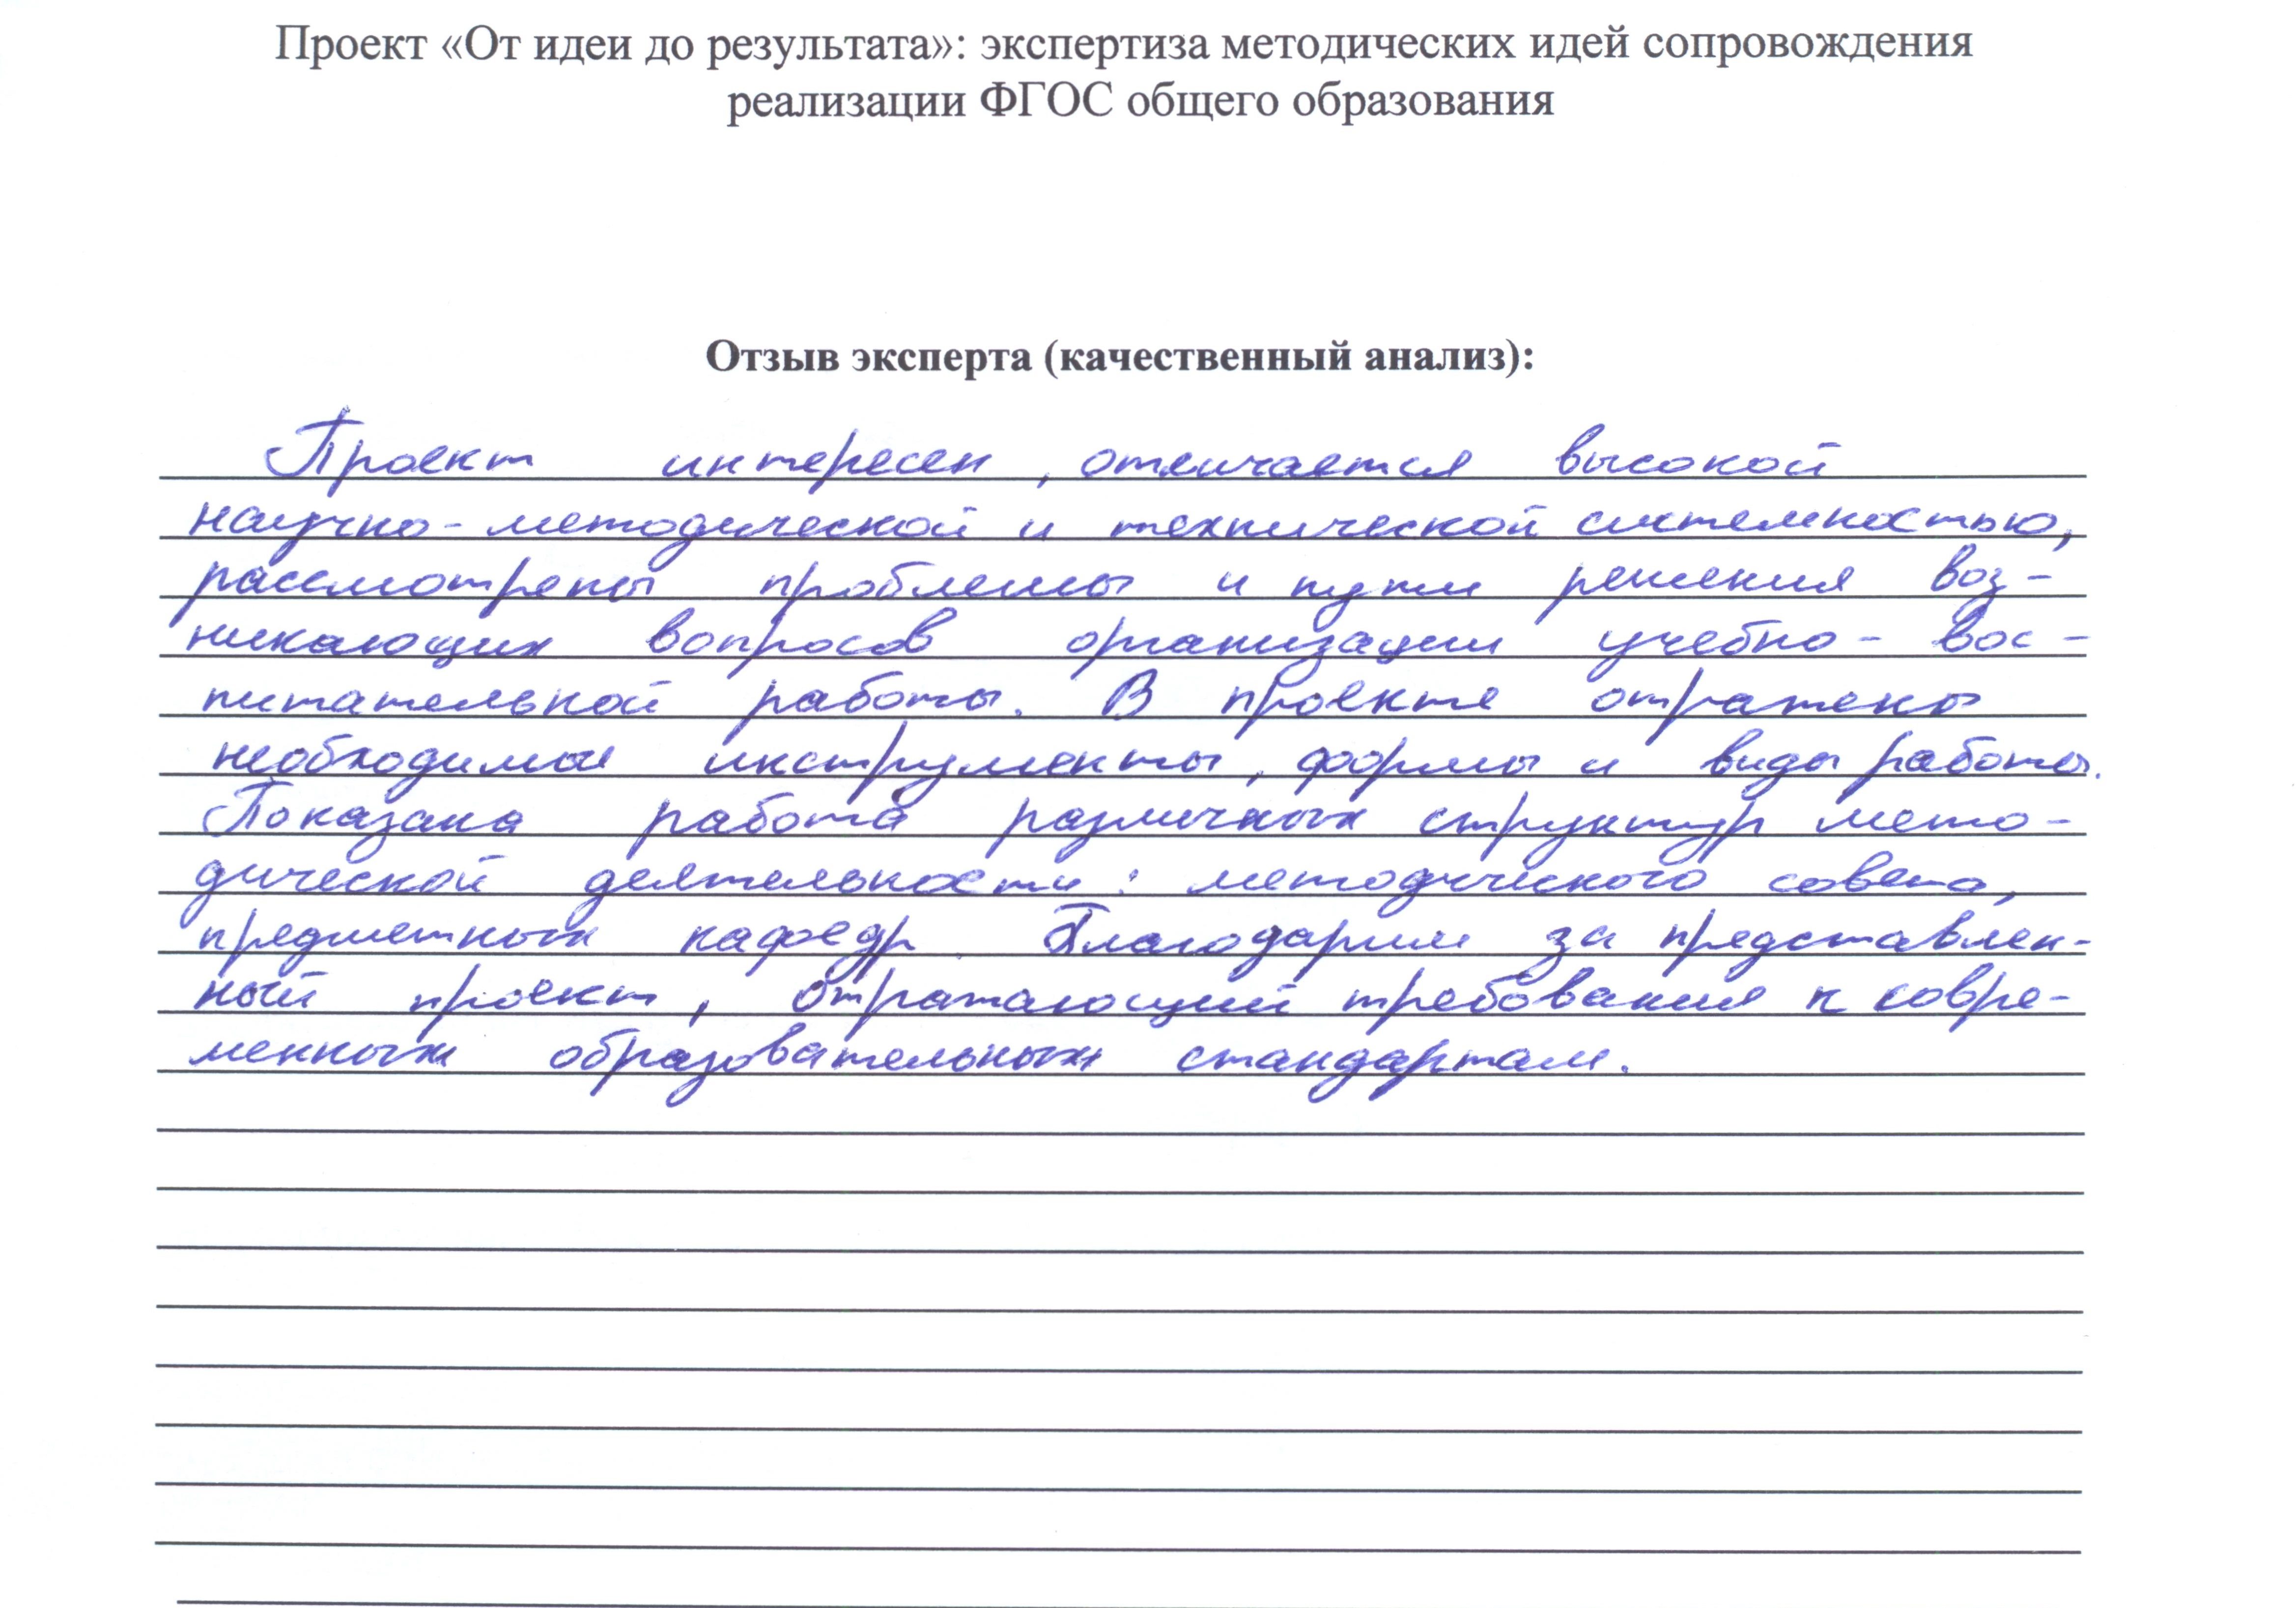 Проект «От идеи до результата»: экспертиза методических идей сопровождения
реализации ФГОС общего образования
Отзыв эксперта (качественный анализ):
Проект интересен, отличается высокой
научно-методической и технической системностью,
рассмотрены проблемы и пути решения воз-
никающих вопросов организации учебно-вос-
питательной работы. В проекте отражены
необходимые инструменты, формы и виды работы.
Показана работа различных структур мето-
дической деятельности: методического совета,
предметных кафедр. Благодарим за представлен-
ный проект, отражающий требования к совре-
менным образовательным стандартам.